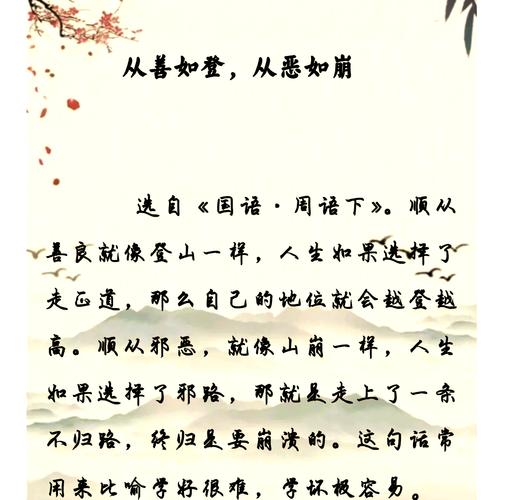 从善如登，从恶如崩
选自《国语·周语下》。顺从
善良就像登山一样，人生如果选择了
走正道，那么自己的地位就会越登越
高。顺从邪恶，就像山崩一样，人生
如果选择了邪路，那就是走上了一条
不归路，终归是要崩溃的。这句话常
用来比喻学好很难，学坏极容易。